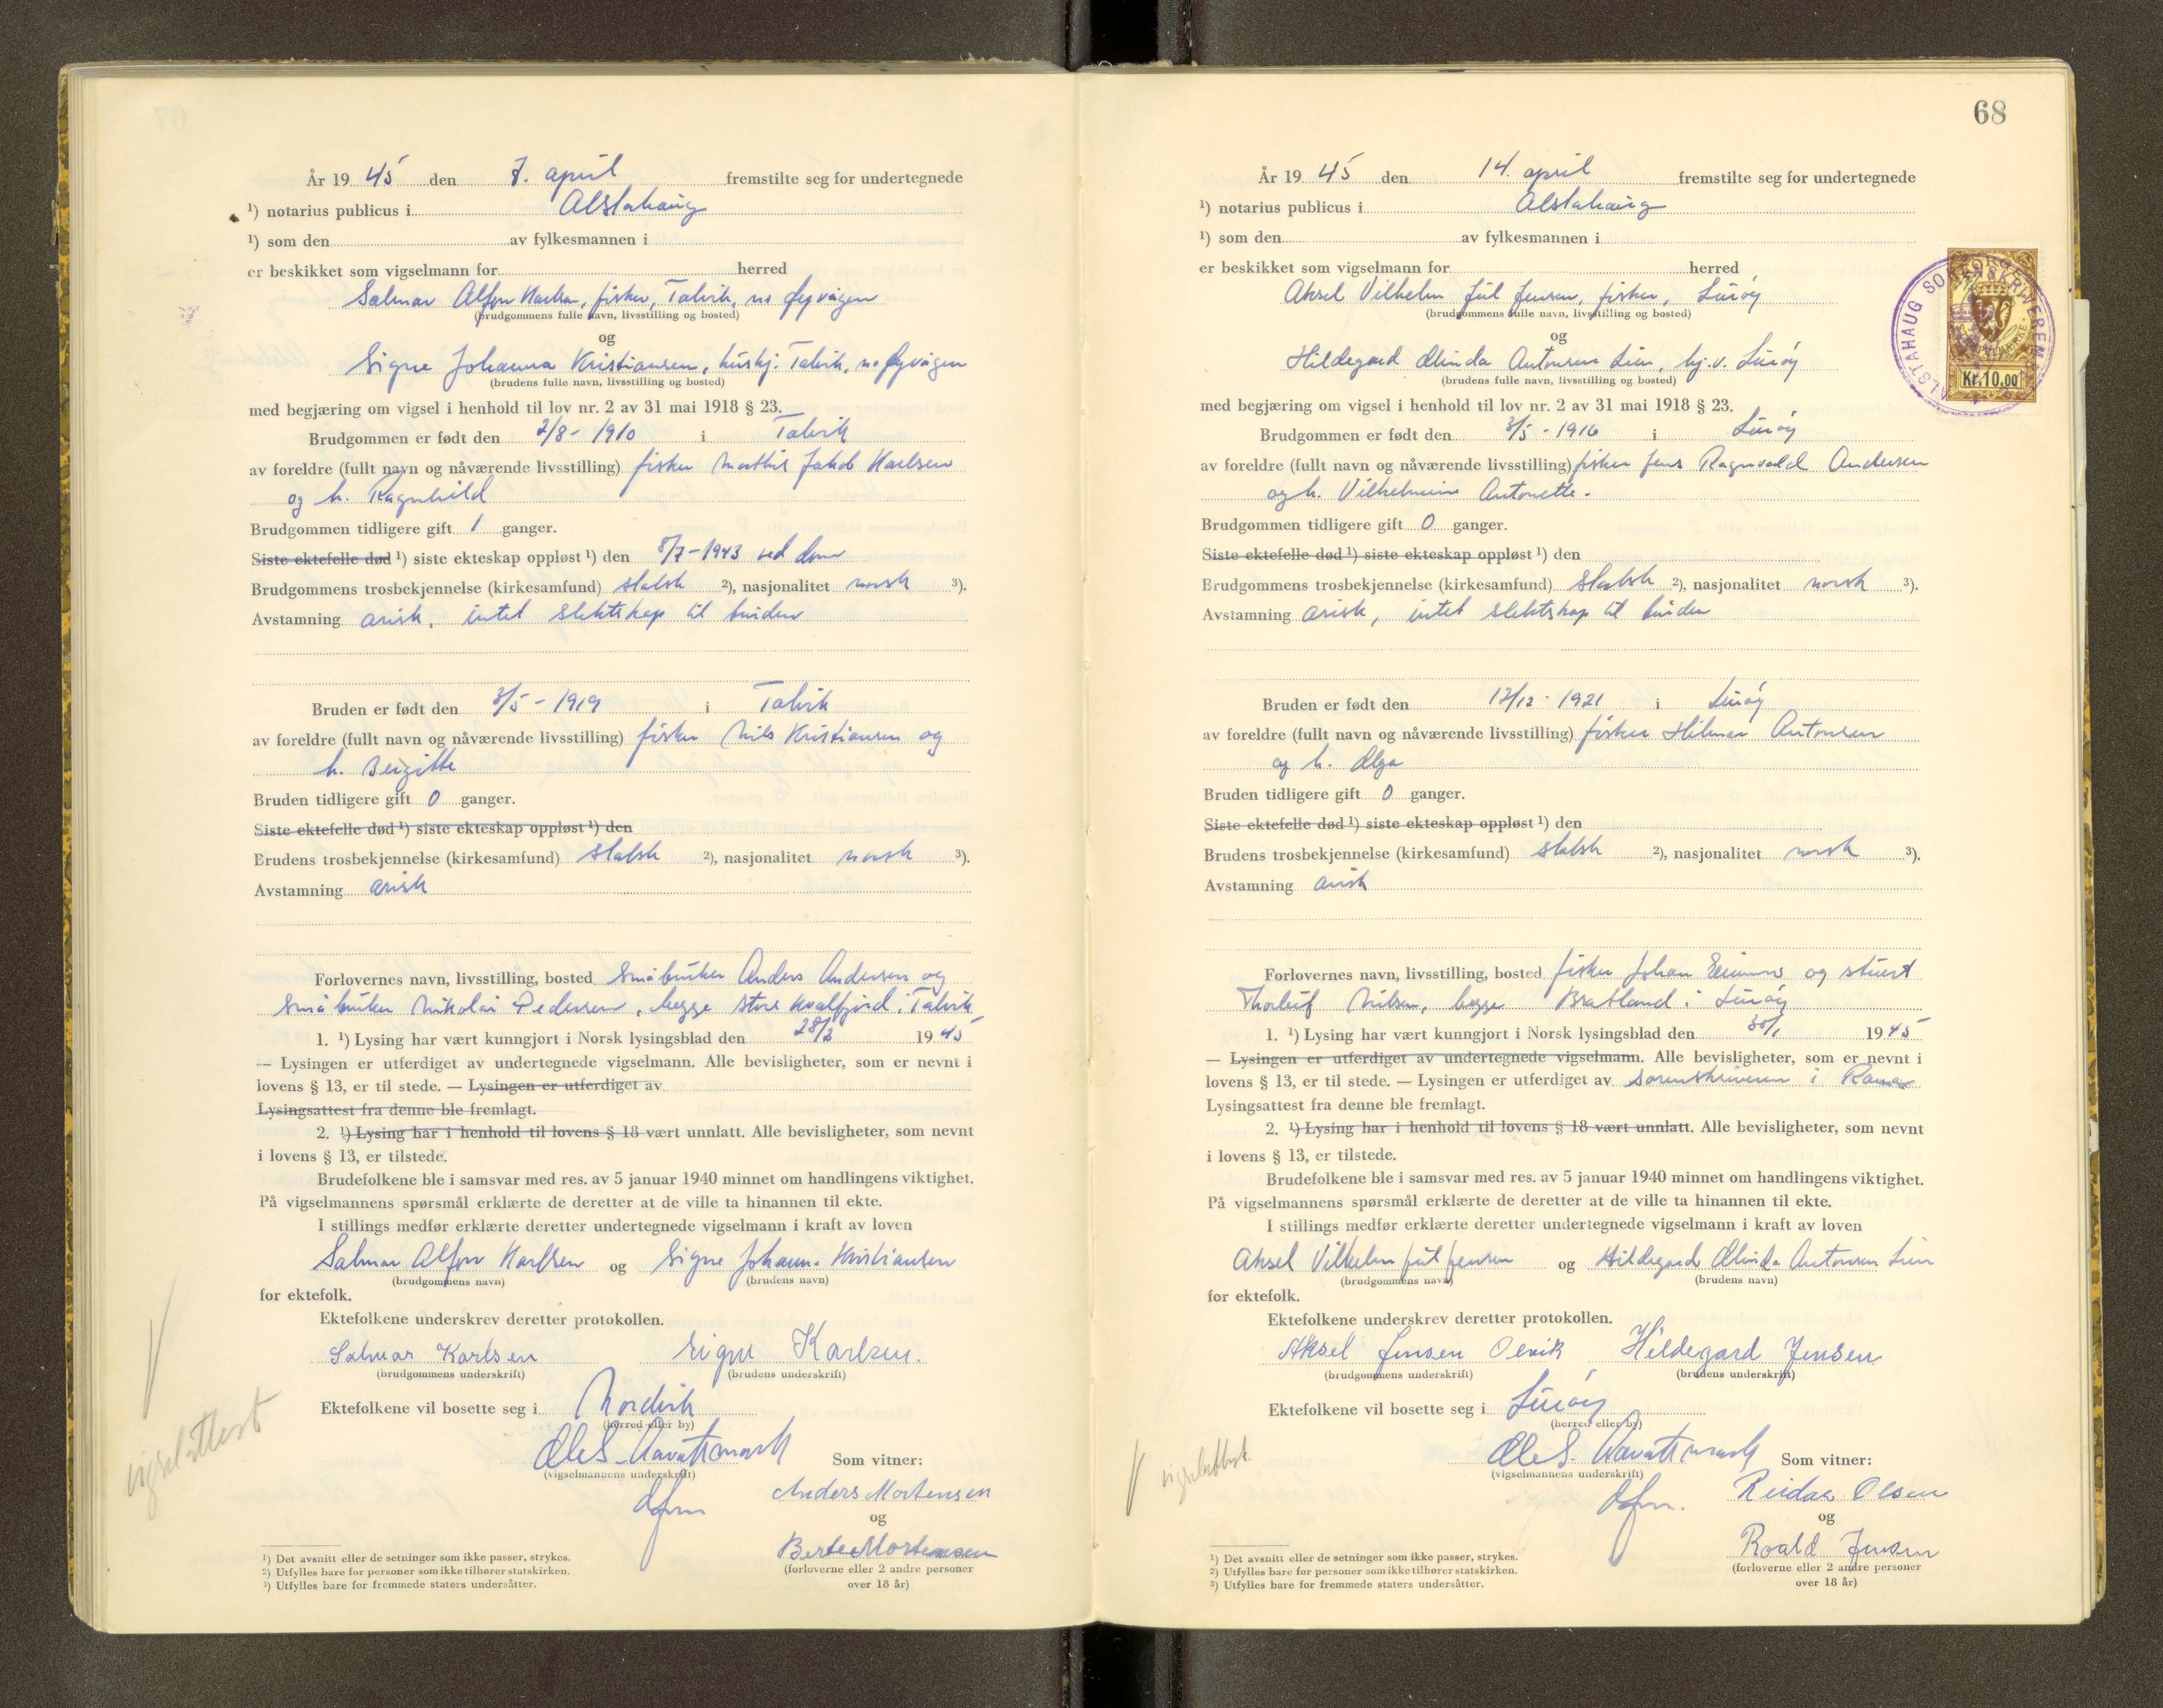 År 19 45 den 7. april fremstilte seg for undertegnede
¹) notarius publicus i Alstahaug
¹) som den av fylkesmannen i
er beskikket som vigselmann for herred
Salmar Alfon Karlsen, fisker, Talvik, nå
(brudgommens fulle navn, livsstilling og bosted)
og
Signe Johanna Kristiansen, hushj. Talvik, nå
(brudens fulle navn, livsstilling og bosted)
med begjæring om vigsel i henhold til lov nr. 2 av 31 mai 1918 § 23.
Brudgommen er født den 2/8 - 1910 i Talvik
av foreldre (fullt navn og nåværende livsstilling) fisker Jakob Karlsen
og h. Ragnhild
Brudgommen tidligere gift 1 ganger.
Siste ektefelle død ¹) siste ekteskap oppløst ¹) den 8/7 - 1943 ved dom
Brudgommens trosbekjennelse (kirkesamfund) statsk ²), nasjonalitet norsk ³).
Avstamning arisk, intet slektskap til bruden
Bruden er født den 3/5 - 1919 i Talvik
av foreldre (fullt navn og nåværende livsstilling) fisker Nils Kristiansen og
h. Bergitte
Bruden tidligere gift 0 ganger.
Siste ektefelle død ¹) siste ekteskap oppløst ¹) den
Brudens trosbekjennelse (kirkesamfund) statsk ²), nasjonalitet norsk ³).
Avstamning arisk
Forlovernes navn, livsstilling, bosted småbruker Anders Andersen og
småbruker Nikolai Pedersen, begge Store Kvalfjord i Talvik
1. ¹) Lysing har vært kunngjort i Norsk lysingsblad den 28/2 1945
— Lysingen er utferdiget av undertegnede vigselmann. Alle bevisligheter, som er nevnt i
lovens § 13, er til stede. — Lysingen er utferdiget av
Lysingsattest fra denne ble fremlagt.
2. ¹) Lysing har i henhold til lovens § 18 vært unnlatt. Alle bevisligheter, som nevnt
i lovens § 13, er tilstede.
Brudefolkene ble i samsvar med res. av 5 januar 1940 minnet om handlingens viktighet.
På vigselmannens spørsmål erklærte de deretter at de ville ta hinannen til ekte.
I stillings medfør erklærte deretter undertegnede vigselmann i kraft av loven
Salmar Alfon Karlsen og Signe Johanna Kristiansen
(brudgommens navn) (brudens navn)
for ektefolk.
Ektefolkene underskrev deretter protokollen.
Salmar Karlsen Signe Karlsen.
(brudgommens underskrift) (brudens underskrift)
Ektefolkene vil bosette seg i Nordvik
(herred eller by)
Ole S. Aavatsmark
(vigselmannens underskrift)
dfm
Som vitner:
Anders Mortensen
og
Berte Mortensen
(forloverne eller 2 andre personer
over 18 år)
vigselattest
¹) Det avsnitt eller de setninger som ikke passer, strykes.
²) Utfylles bare for personer som ikke tilhører statskirken.
³) Utfylles bare for fremmede staters undersåtter.
68
År 19 45 den 14. april fremstilte seg for undertegnede
¹) notarius publicus i Alstahaug
¹) som den av fylkesmannen i
er beskikket som vigselmann for herred
Aksel Vilhelm Jul Jensen, fisker, Lurøy
(brudgommens fulle navn, livsstilling og bosted)
og
Hildegard Olinda Antonsen Lien, hj.v. Lurøy
(brudens fulle navn, livsstilling og bosted)
ALSTAHAUG SORENSKRIVEREMBETE
Kr.10.00
med begjæring om vigsel i henhold til lov nr. 2 av 31 mai 1918 § 23.
Brudgommen er født den 3/5 - 1916 i Lurøy
av foreldre (fullt navn og nåværende livsstilling) fisker Jens Ragnvald Andersen
og h. Vilhelmine Antonette.
Brudgommen tidligere gift 0 ganger.
Siste ektefelle død ¹) siste ekteskap oppløst ¹) den
Brudgommens trosbekjennelse (kirkesamfund) statsk ²), nasjonalitet norsk ³).
Avstamning arisk, intet slektskap til bruden
Bruden er født den 12/12 - 1921 i Lurøy
av foreldre (fullt navn og nåværende livsstilling) fisker Hilmar Antonsen
og h. Olga
Bruden tidligere gift 0 ganger.
Siste ektefelle død ¹) siste ekteskap oppløst ¹) den
Brudens trosbekjennelse (kirkesamfund) statsk ²), nasjonalitet norsk ³).
Avstamning arisk
Forlovernes navn, livsstilling, bosted fisker Johan og stuert
Thorleif Nilsen, begge Bratland i Lurøy
1. ¹) Lysing har vært kunngjort i Norsk lysingsblad den 30/1 1945
— Lysingen er utferdiget av undertegnede vigselmann. Alle bevisligheter, som er nevnt i
lovens § 13, er til stede. — Lysingen er utferdiget av sorenskriveren i Rana
Lysingsattest fra denne ble fremlagt.
2. ¹) Lysing har i henhold til lovens § 18 vært unnlatt. Alle bevisligheter, som nevnt
i lovens § 13, er tilstede.
Brudefolkene ble i samsvar med res. av 5 januar 1940 minnet om handlingens viktighet.
På vigselmannens spørsmål erklærte de deretter at de ville ta hinannen til ekte.
I stillings medfør erklærte deretter undertegnede vigselmann i kraft av loven
Aksel Vilhelm Jul Jensen og Hildegard Olinda Antonsen Lien
(brudgommens navn) (brudens navn)
for ektefolk.
Ektefolkene underskrev deretter protokollen.
Aksel Jensen Olvik Hildegard Jensen
(brudgommens underskrift) (brudens underskrift)
Ektefolkene vil bosette seg i Lurøy
(herred eller by)
Ole S. Aavatsmark
(vigselmannens underskrift)
dfm.
Som vitner:
Reidar Olsen
og
Roald Jensen
(forloverne eller 2 andre personer
over 18 år)
vigselattest.
¹) Det avsnitt eller de setninger som ikke passer, strykes.
²) Utfylles bare for personer som ikke tilhører statskirken.
³) Utfylles bare for fremmede staters undersåtter.